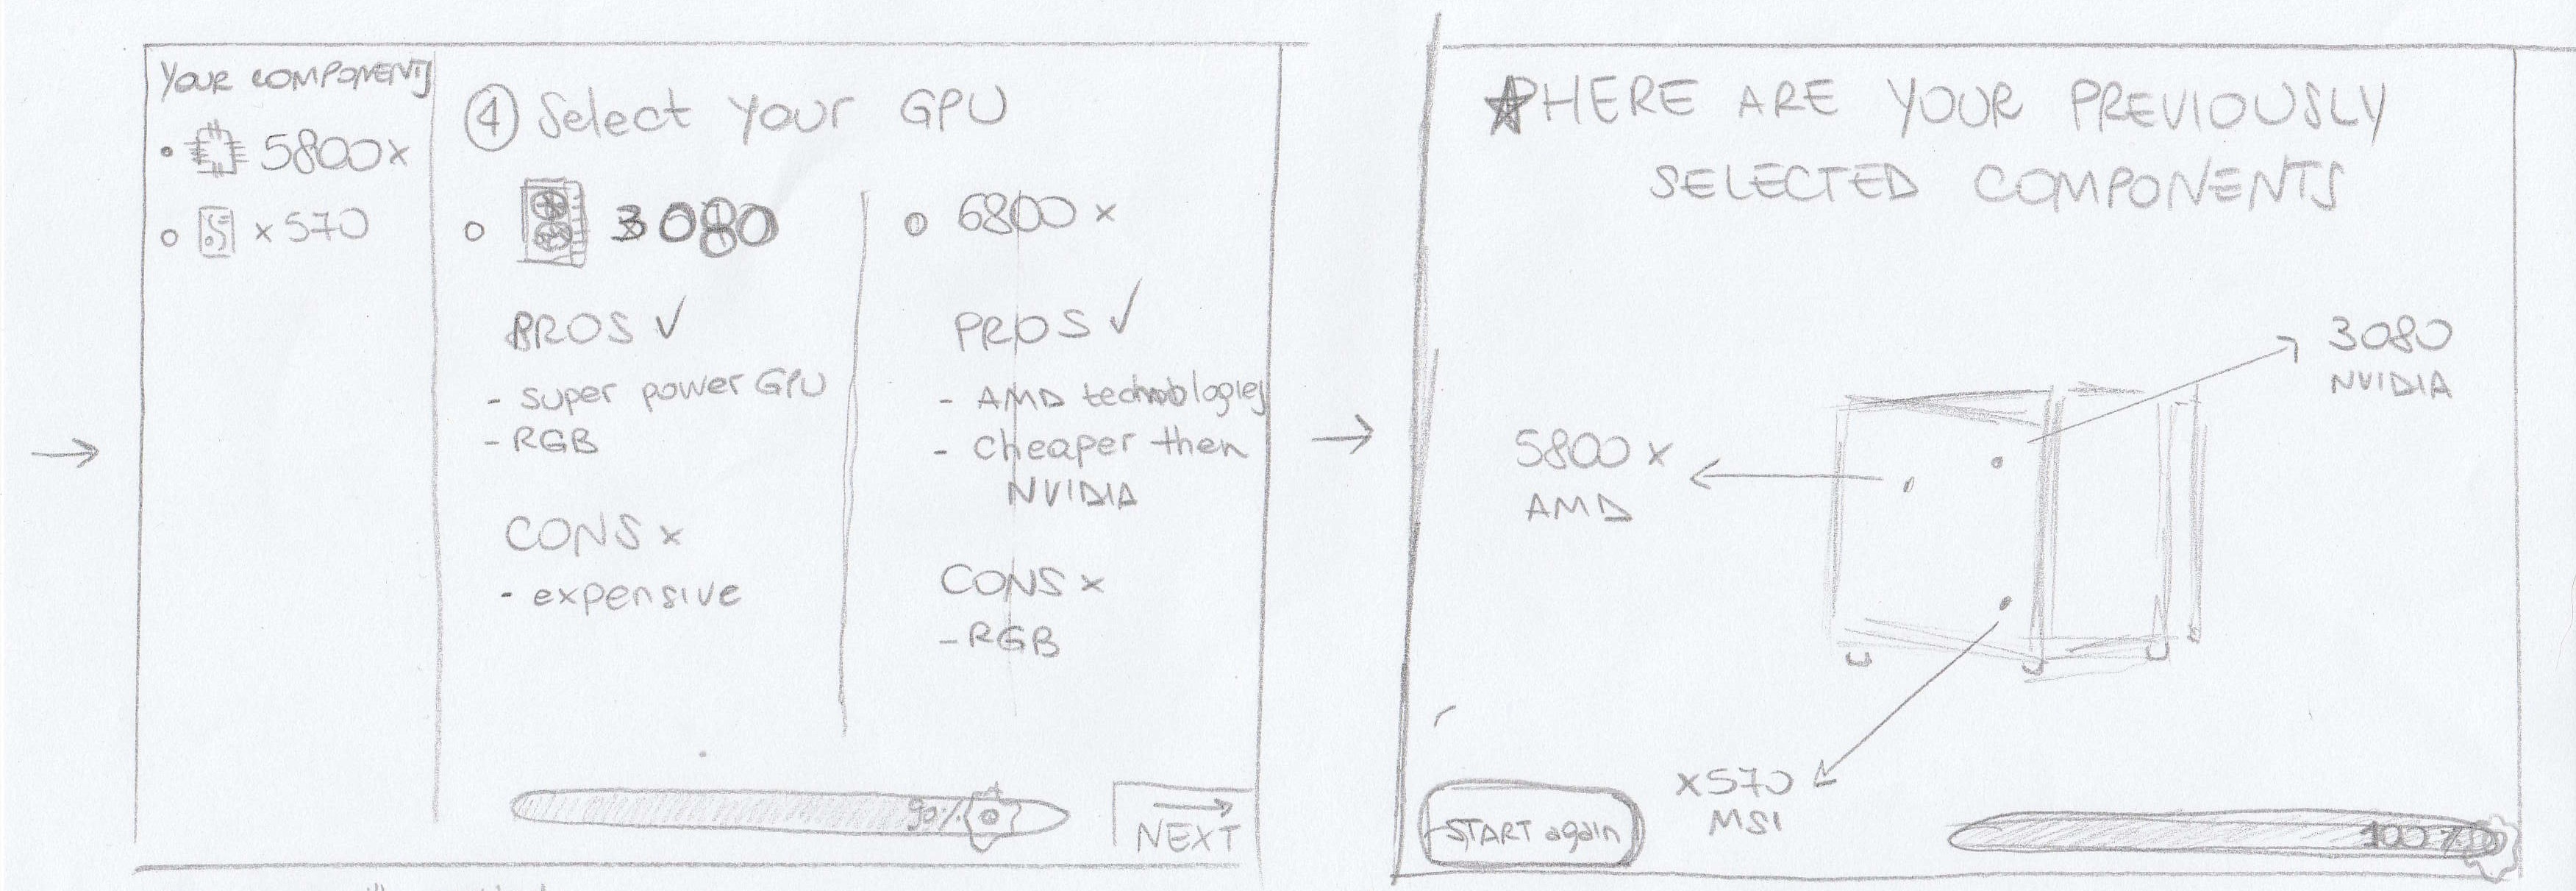 YOUR COMPONENTS
5800x
x570
4 Select your GPU
3080
PROS ✓
- super power GPU
- RGB
CONS x
- expensive
6800 x
PROS ✓
- AMD technologies
- Cheaper then
NVIDIA
CONS x
- RGB
90%
NEXT
HERE ARE YOUR PREVIOUSLY
SELECTED COMPONENTS
3080
NVIDIA
5800 x
AMD
x570
MSI
START again
100%